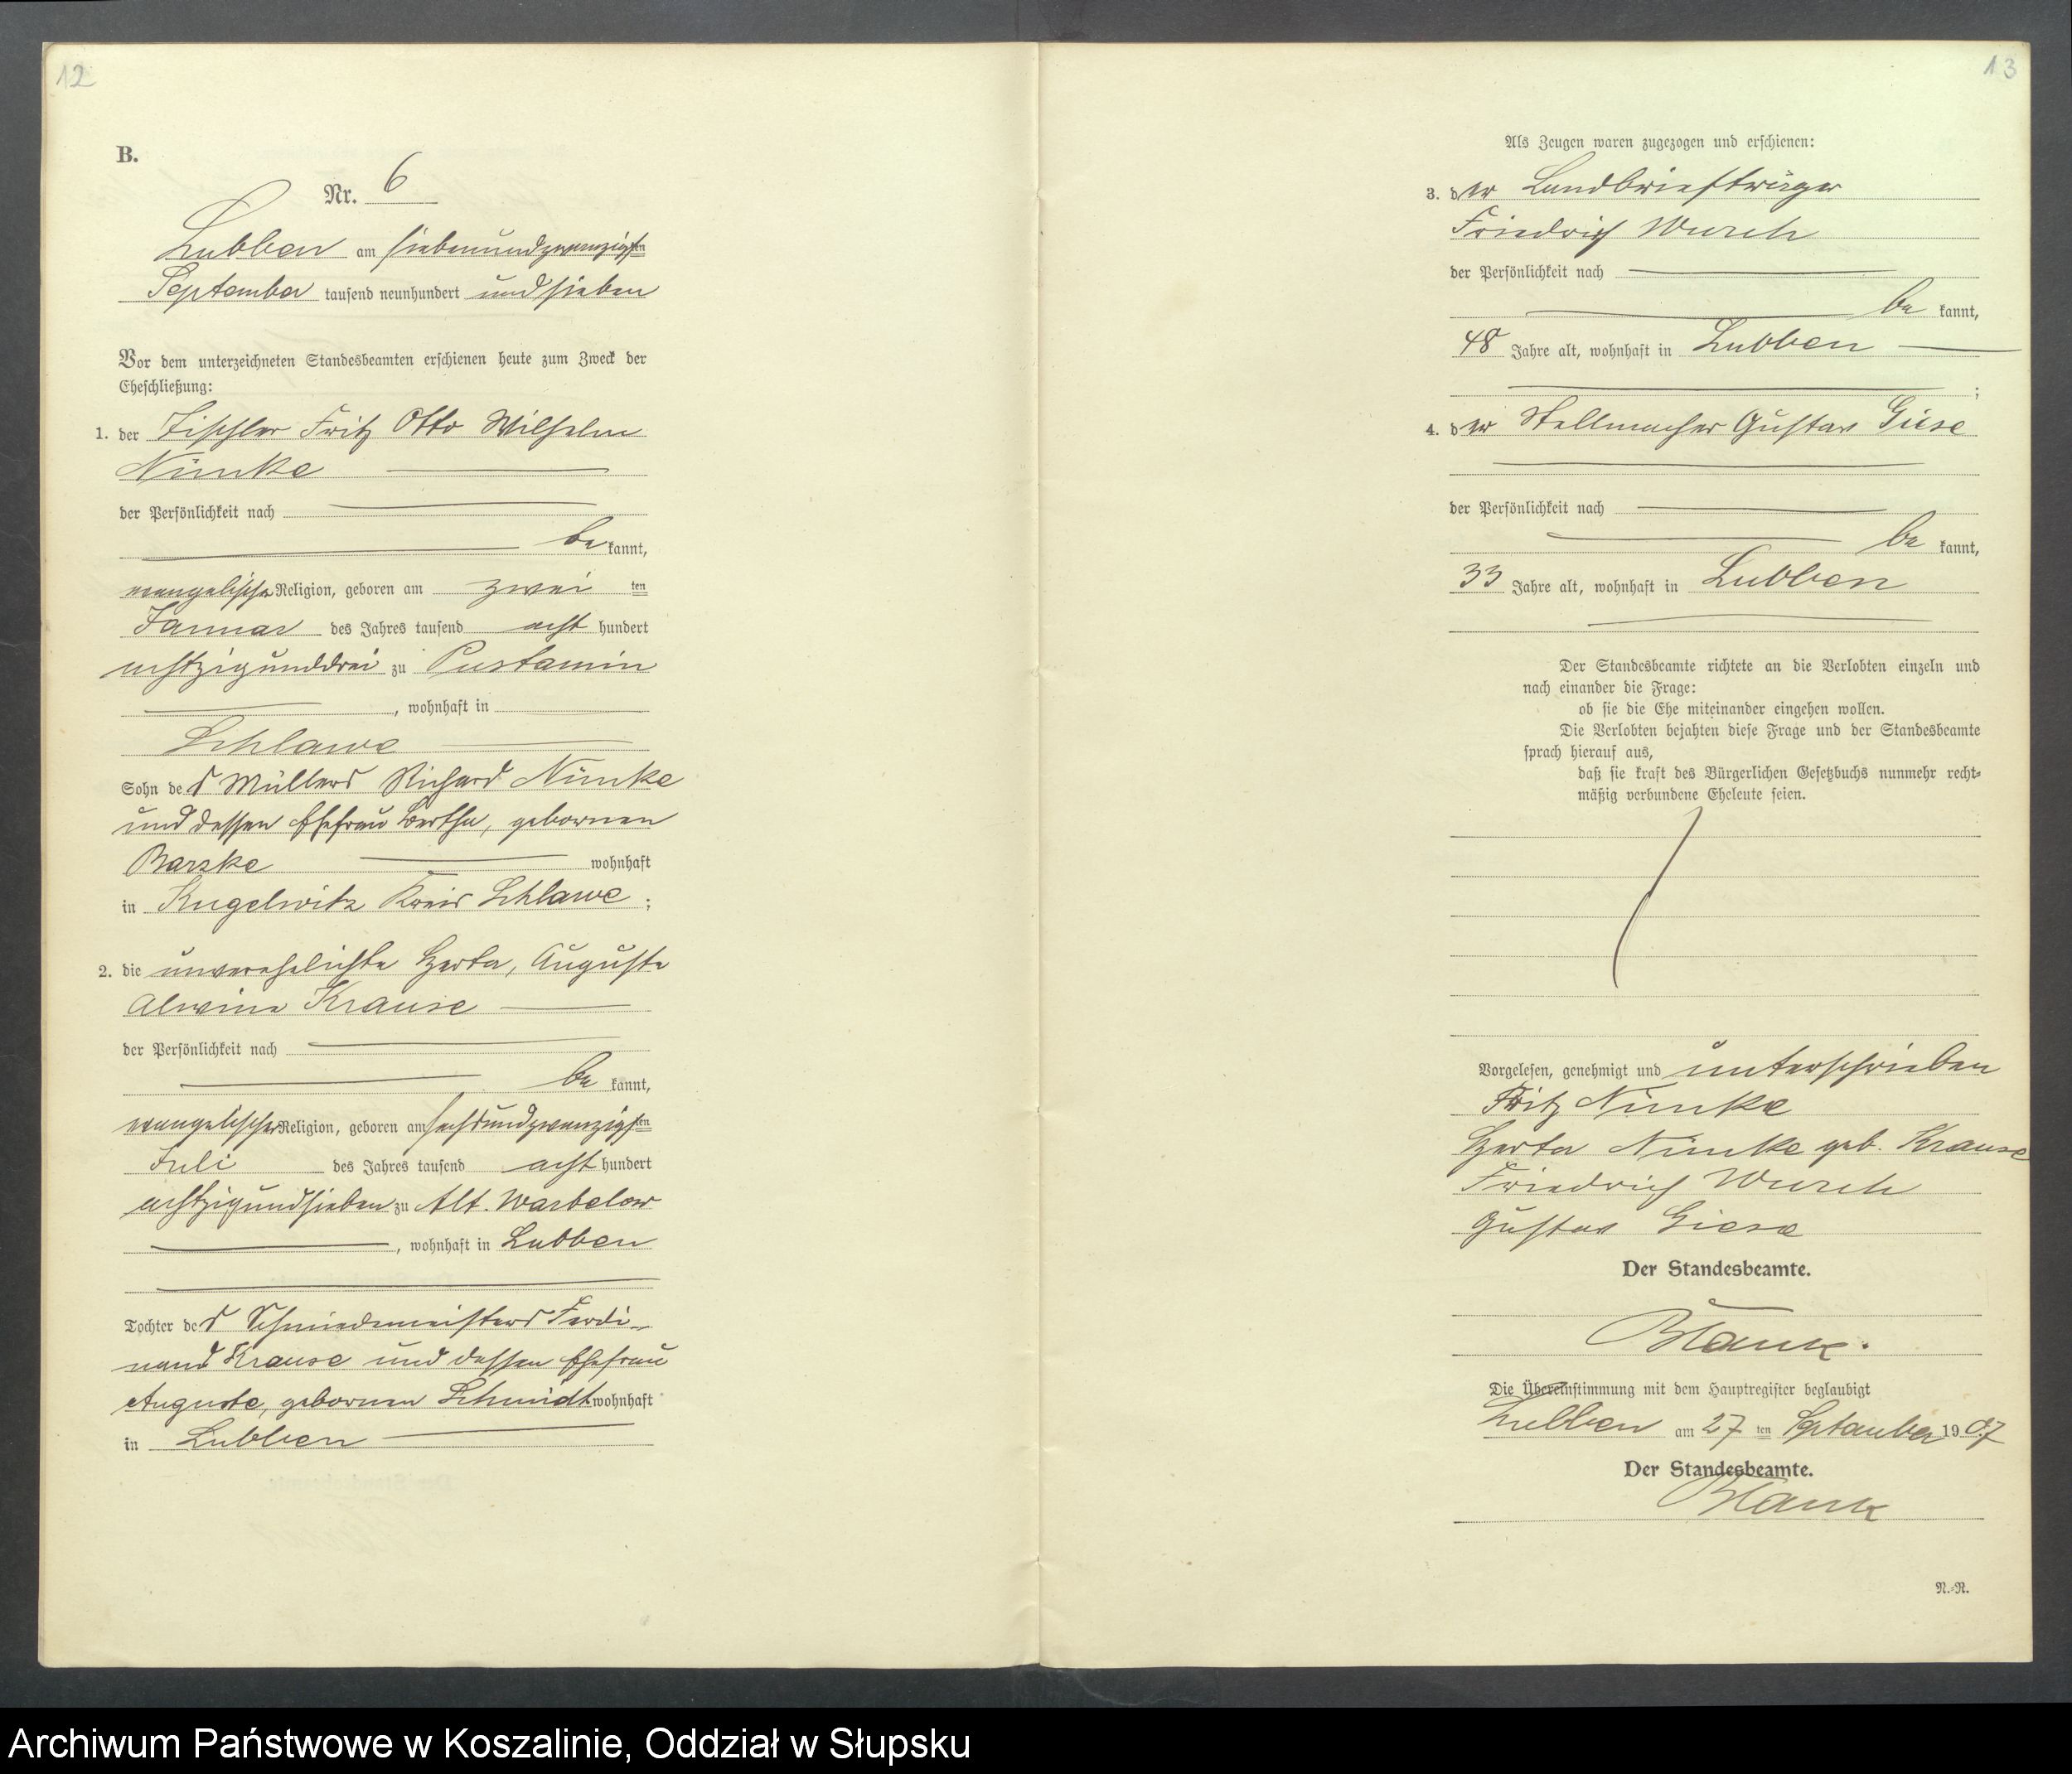 12
B.
Nr. 6
Lubben am siebenundzwanzigsten
September tausend neunhundert und sieben
Vor dem unterzeichneten Standesbeamten erschienen heute zum Zweck der
Eheschließung:
1. der Tischler Fritz Otto Wilhelm
Nimke
der Persönlichkeit nach
be kannt,
evangelischer Religion, geboren am zwei ten
Januar des Jahres tausend acht hundert
achtzigunddrei zu Pustamin
, wohnhaft in
Schlawe
Sohn des Müllers Richard Nimke
und dessen Ehefrau Bertha, gebornen
Barske wohnhaft
in Kugelwitz Kreis Schlawe ;
2. die unverehelichte Herta, Auguste
Alwine Krause
der Persönlichkeit nach
be kannt,
evangelischer Religion, geboren am sechsundzwanzigsten
Juli des Jahres tausend acht hundert
achtzigundsieben zu Alt. Warbelow
, wohnhaft in Lubben
Tochter des Schmiedemeisters Ferdi-
nand Krause und dessen Ehefrau
Auguste, gebornen Schmidt wohnhaft
in Lubben
13
Als Zeugen waren zugezogen und erschienen:
3. der Landbriefträger
Friedrich Wurch
der Persönlichkeit nach
be kannt,
48 Jahre alt, wohnhaft in Lubben
;
4. der Stellmacher Gustav Giese
der Persönlichkeit nach
be kannt,
33 Jahre alt, wohnhaft in Lubben
Der Standesbeamte richtete an die Verlobten einzeln und
nach einander die Frage:
ob sie die Ehe miteinander eingehen wollen.
Die Verlobten bejahten diese Frage und der Standesbeamte
sprach hierauf aus,
daß sie kraft des Bürgerlichen Gesetzbuchs nunmehr recht-
mäßig verbundene Eheleute seien.
Vorgelesen, genehmigt und unterschrieben
Fritz Nimke
Herta Nimke geb. Krause
Friedrich Wurch
Gustav Giese
Der Standesbeamte.
Blank.
Die Übereinstimmung mit dem Hauptregister beglaubigt
Lubben am 27 ten September 19 07
Der Standesbeamte.
Blank
N.-R.
Archiwum Państwowe w Koszalinie, Oddział w Słupsku